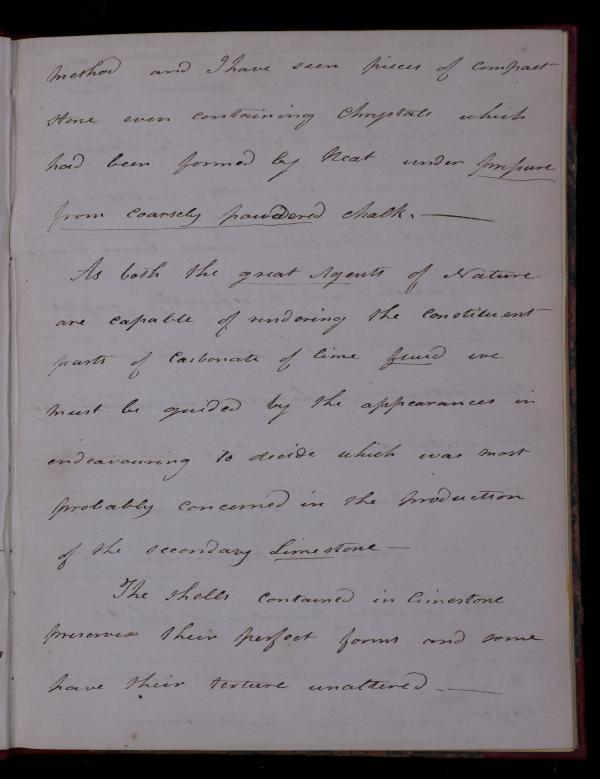 method and I have seen pieces of compact
stone even containing Chrystals which
had been formed by Heat under pressure
from coarsely powdered chalk. —
As both the great Agents of Nature
are capable of rendering the constituent
parts of Carbonate of lime fluid we
must be guided by the appearances in
endeavouring to decide which was most
probably concerned in the production
of the secondary Limestone —
The shells contained in limestone
preserve their perfect forms and some
have their texture unaltered. —